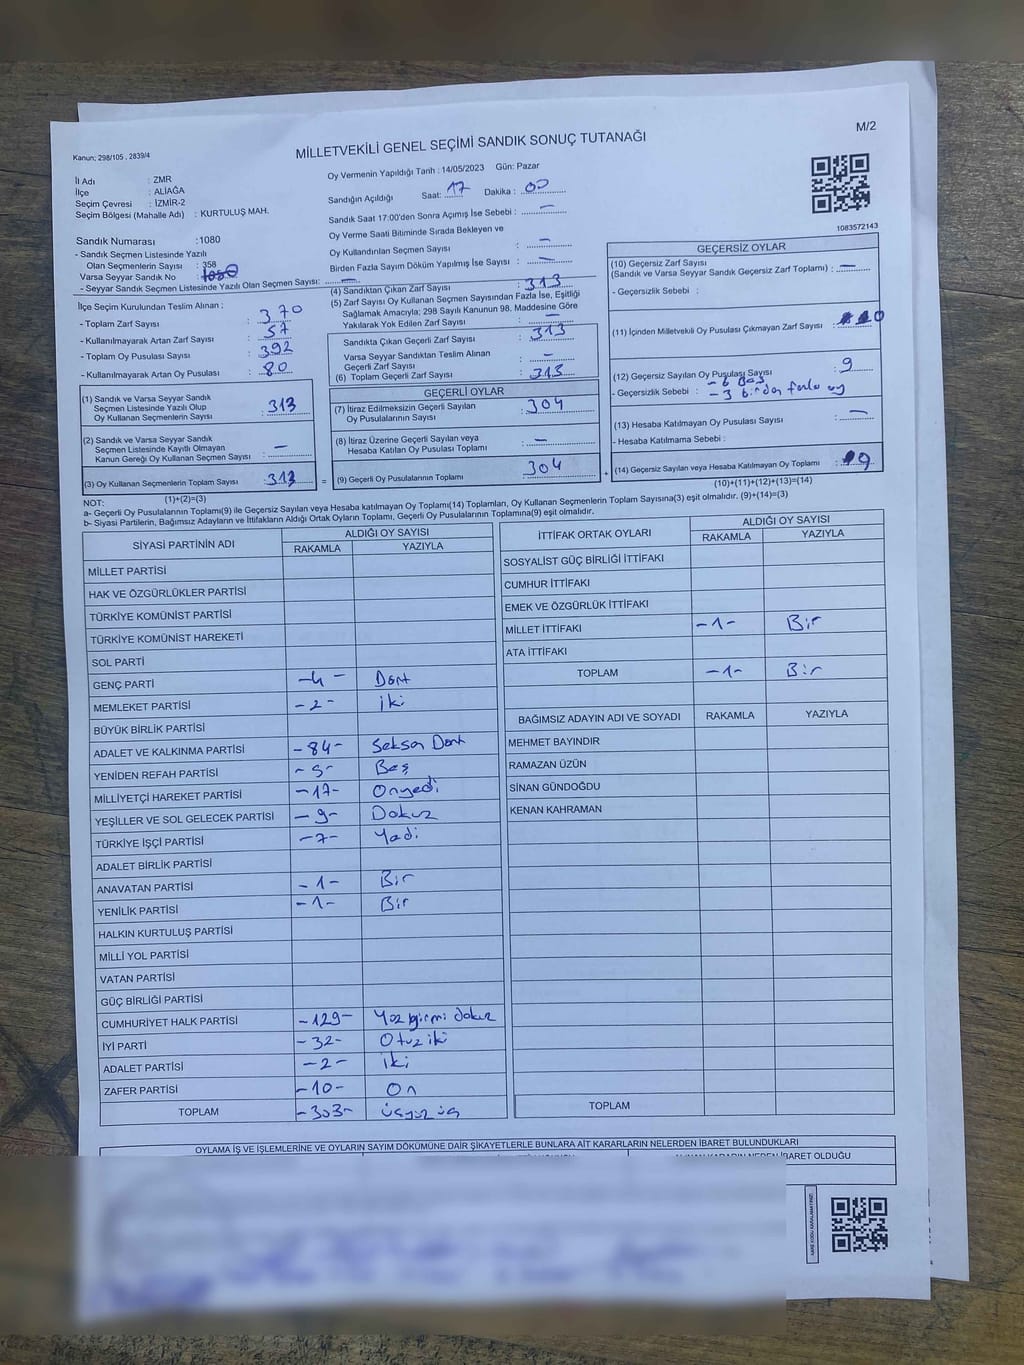 M/2
Kanun; 298/105 , 2839/4
MİLLETVEKİLİ GENEL SEÇİMİ SANDIK SONUÇ TUTANAĞI
İl Adı : ZMR
İlçe : ALİAĞA
Seçim Çevresi : İZMİR-2
Seçim Bölgesi (Mahalle Adı) : KURTULUŞ MAH.
Sandık Numarası :1080
- Sandık Seçmen Listesinde Yazılı
Olan Seçmenlerin Sayısı : 358
Varsa Seyyar Sandık No :
- Seyyar Sandık Seçmen Listesinde Yazılı Olan Seçmen Sayısı: —
Oy Vermenin Yapıldığı Tarih : 14/05/2023 Gün: Pazar
Sandığın Açıldığı Saat: 17 Dakika : 00
Sandık Saat 17:00'den Sonra Açımış İse Sebebi : —
Oy Verme Saati Bitiminde Sırada Bekleyen ve
Oy Kullandırılan Seçmen Sayısı : —
Birden Fazla Sayım Döküm Yapılmış İse Sayısı : —
1083572143
İlçe Seçim Kurulundan Teslim Alınan ;
- Toplam Zarf Sayısı : 370
- Kullanılmayarak Artan Zarf Sayısı : 57
- Toplam Oy Pusulası Sayısı : 392
- Kullanılmayarak Artan Oy Pusulası : 80
(1) Sandık ve Varsa Seyyar Sandık
Seçmen Listesinde Yazılı Olup
Oy Kullanan Seçmenlerin Sayısı : 313
(2) Sandık ve Varsa Seyyar Sandık
Seçmen Listesinde Kayıtlı Olmayan
Kanun Gereği Oy Kullanan Seçmen Sayısı : —
(3) Oy Kullanan Seçmenlerin Toplam Sayısı : 313
(1)+(2)=(3)
(4) Sandıktan Çıkan Zarf Sayısı : 313
(5) Zarf Sayısı Oy Kullanan Seçmen Sayısından Fazla İse, Eşitliği
Sağlamak Amacıyla; 298 Sayılı Kanunun 98. Maddesine Göre
Yakılarak Yok Edilen Zarf Sayısı : —
Sandıkta Çıkan Geçerli Zarf Sayısı : 313
Varsa Seyyar Sandıktan Teslim Alınan
Geçerli Zarf Sayısı : —
(6) Toplam Geçerli Zarf Sayısı : 313
GEÇERLİ OYLAR
(7) İtiraz Edilmeksizin Geçerli Sayılan
Oy Pusulalarının Sayısı : 304
(8) İtiraz Üzerine Geçerli Sayılan veya
Hesaba Katılan Oy Pusulası Toplamı : —
= (9) Geçerli Oy Pusulalarının Toplamı : 304 +
GEÇERSİZ OYLAR
(10) Geçersiz Zarf Sayısı
(Sandık ve Varsa Seyyar Sandık Geçersiz Zarf Toplamı) : —
- Geçersizlik Sebebi :
(11) İçinden Milletvekili Oy Pusulası Çıkmayan Zarf Sayısı : 0
(12) Geçersiz Sayılan Oy Pusulası Sayısı : 9
- Geçersizlik Sebebi : - 6 Boş
- 3 birden fazla oy
(13) Hesaba Katılmayan Oy Pusulası Sayısı : —
- Hesaba Katılmama Sebebi :
(14) Geçersiz Sayılan veya Hesaba Katılmayan Oy Toplamı : 9
(10)+(11)+(12)+(13)=(14)
NOT:
a- Geçerli Oy Pusulalarının Toplamı(9) ile Geçersiz Sayılan veya Hesaba katılmayan Oy Toplamı(14) Toplamları, Oy Kullanan Seçmenlerin Toplam Sayısına(3) eşit olmalıdır. (9)+(14)=(3)
b- Siyasi Partilerin, Bağımsız Adayların ve İttifakların Aldığı Ortak Oyların Toplamı, Geçerli Oy Pusulalarının Toplamına(9) eşit olmalıdır.
SİYASİ PARTİNİN ADI ALDIĞI OY SAYISI
RAKAMLA YAZIYLA
MİLLET PARTİSİ
HAK VE ÖZGÜRLÜKLER PARTİSİ
TÜRKİYE KOMÜNİST PARTİSİ
TÜRKİYE KOMÜNİST HAREKETİ
SOL PARTİ
GENÇ PARTİ -4- Dört
MEMLEKET PARTİSİ -2- iki
BÜYÜK BİRLİK PARTİSİ
ADALET VE KALKINMA PARTİSİ -84- Seksen Dört
YENİDEN REFAH PARTİSİ -5- Beş
MİLLİYETÇİ HAREKET PARTİSİ -17- Onyedi
YEŞİLLER VE SOL GELECEK PARTİSİ -9- Dokuz
TÜRKİYE İŞÇİ PARTİSİ -7- Yedi
ADALET BİRLİK PARTİSİ
ANAVATAN PARTİSİ -1- Bir
YENİLİK PARTİSİ -1- Bir
HALKIN KURTULUŞ PARTİSİ
MİLLİ YOL PARTİSİ
VATAN PARTİSİ
GÜÇ BİRLİĞİ PARTİSİ
CUMHURİYET HALK PARTİSİ -129- Yüz yirmi dokuz
İYİ PARTİ -32- Otuz iki
ADALET PARTİSİ -2- iki
ZAFER PARTİSİ -10- On
TOPLAM -303- üçyüz üç
İTTİFAK ORTAK OYLARI ALDIĞI OY SAYISI
RAKAMLA YAZIYLA
SOSYALİST GÜÇ BİRLİĞİ İTTİFAKI
CUMHUR İTTİFAKI
EMEK VE ÖZGÜRLÜK İTTİFAKI
MİLLET İTTİFAKI -1- Bir
ATA İTTİFAKI
TOPLAM -1- Bir
BAĞIMSIZ ADAYIN ADI VE SOYADI RAKAMLA YAZIYLA
MEHMET BAYINDIR
RAMAZAN ÜZÜN
SİNAN GÜNDOĞDU
KENAN KAHRAMAN
TOPLAM
OYLAMA İŞ VE İŞLEMLERİNE VE OYLARIN SAYIM DÖKÜMÜNE DAİR ŞİKAYETLERLE BUNLARA AİT KARARLARIN NELERDEN İBARET BULUNDUKLARI
KARARIN NEDEN İBARET OLDUĞU